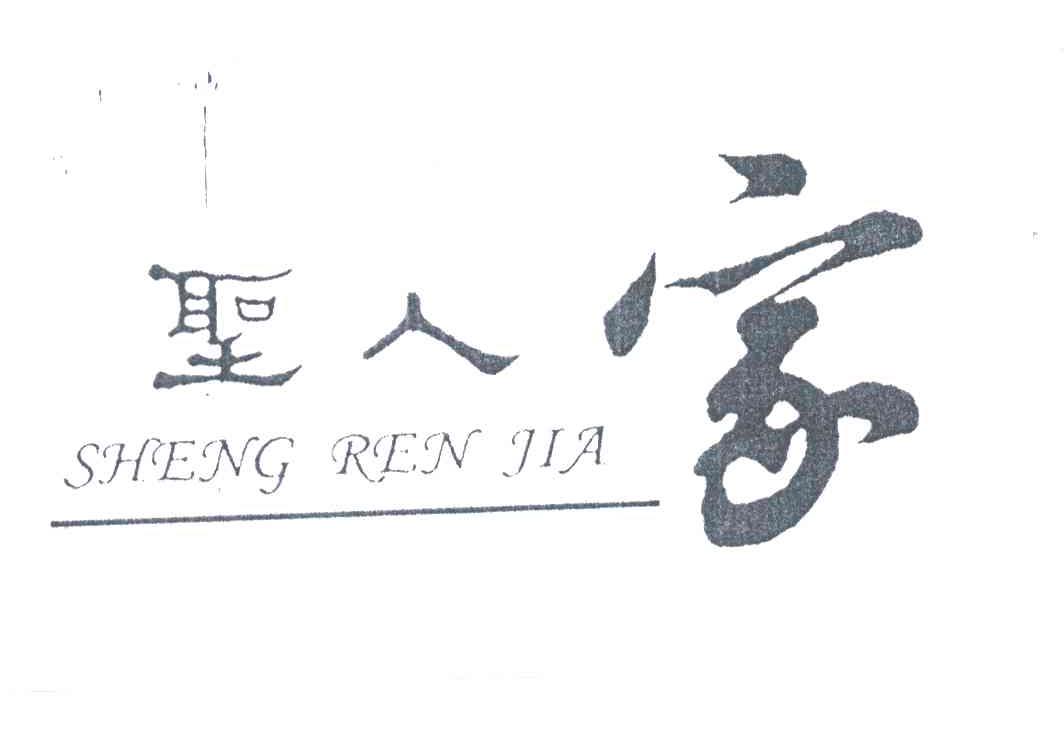 聖人家
SHENG REN JIA